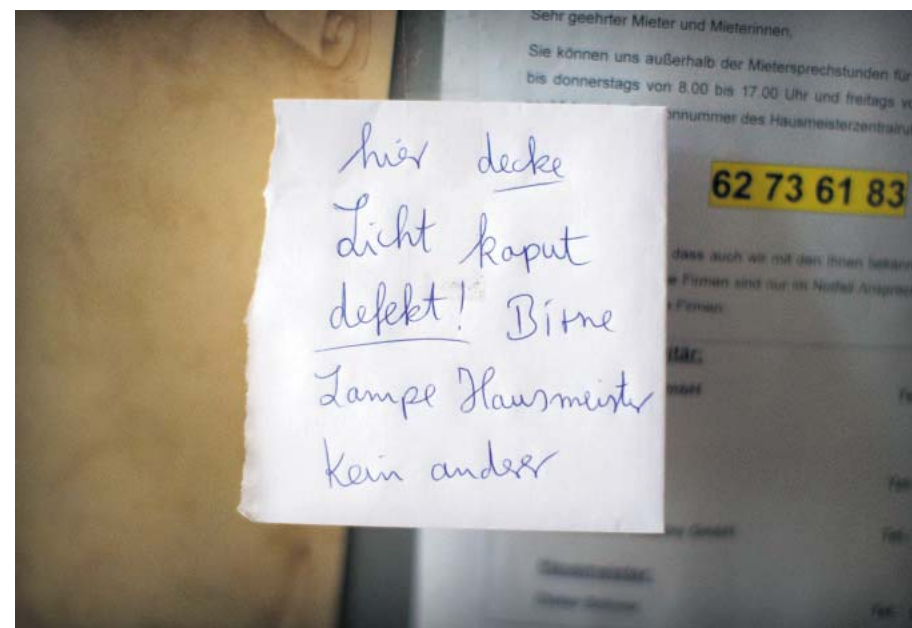 Sehr geehrter Mieter und Mieterinnen,
Sie können uns außerhalb der Mietersprechstunden für
bis donnerstags von 8.00 bis 17.00 Uhr und freitags
des Hausmeisterzentralruf
62 73 61 83
dass auch wir mit den Ihnen bekann
Firmen sind nur im Notfall
Firmen:
hier decke
Licht kaput
defekt! Birne
Lampe Hausmeister
kein andrer